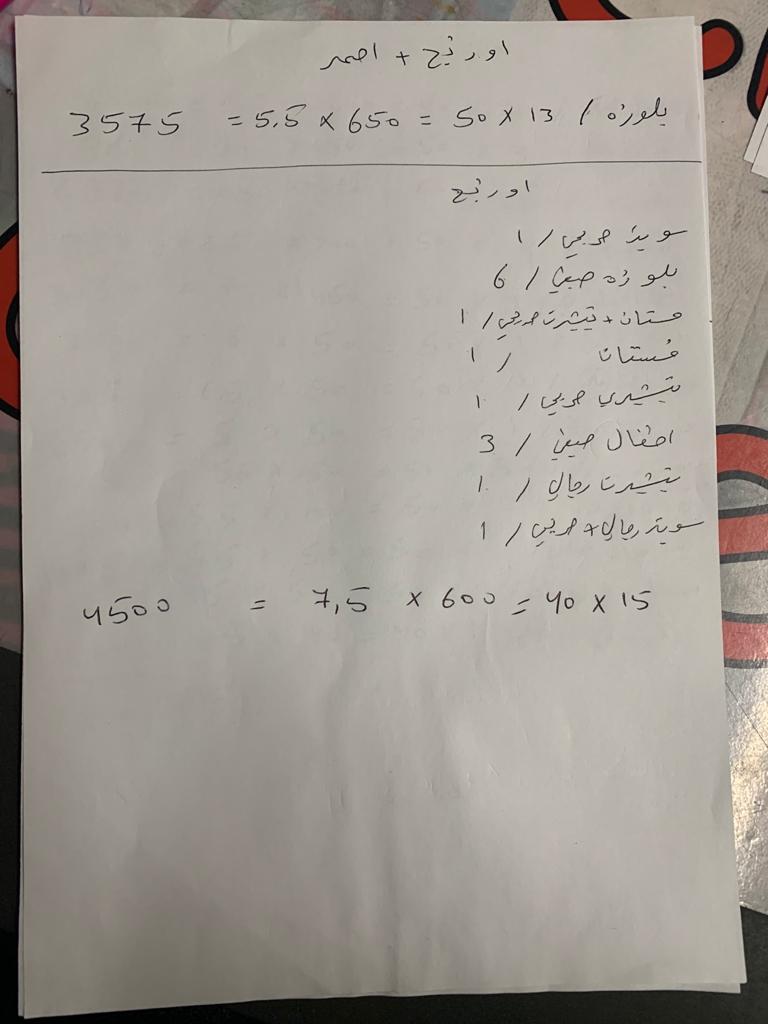 اورنج + احمر
بلوزه / 13 × 50 = 650 × 5.5 = 3575
اورنج
سويتر حربي / 1
بلوزه صيفي / 6
فستان + تيشرت حربي / 1
فستان / 1
تيشرت حربي / 1
اطفال صيفي / 3
تيشرت رجالي / 1
سويتر رجالي + حربي / 1
15 × 40 = 600 × 7,5 = 4500